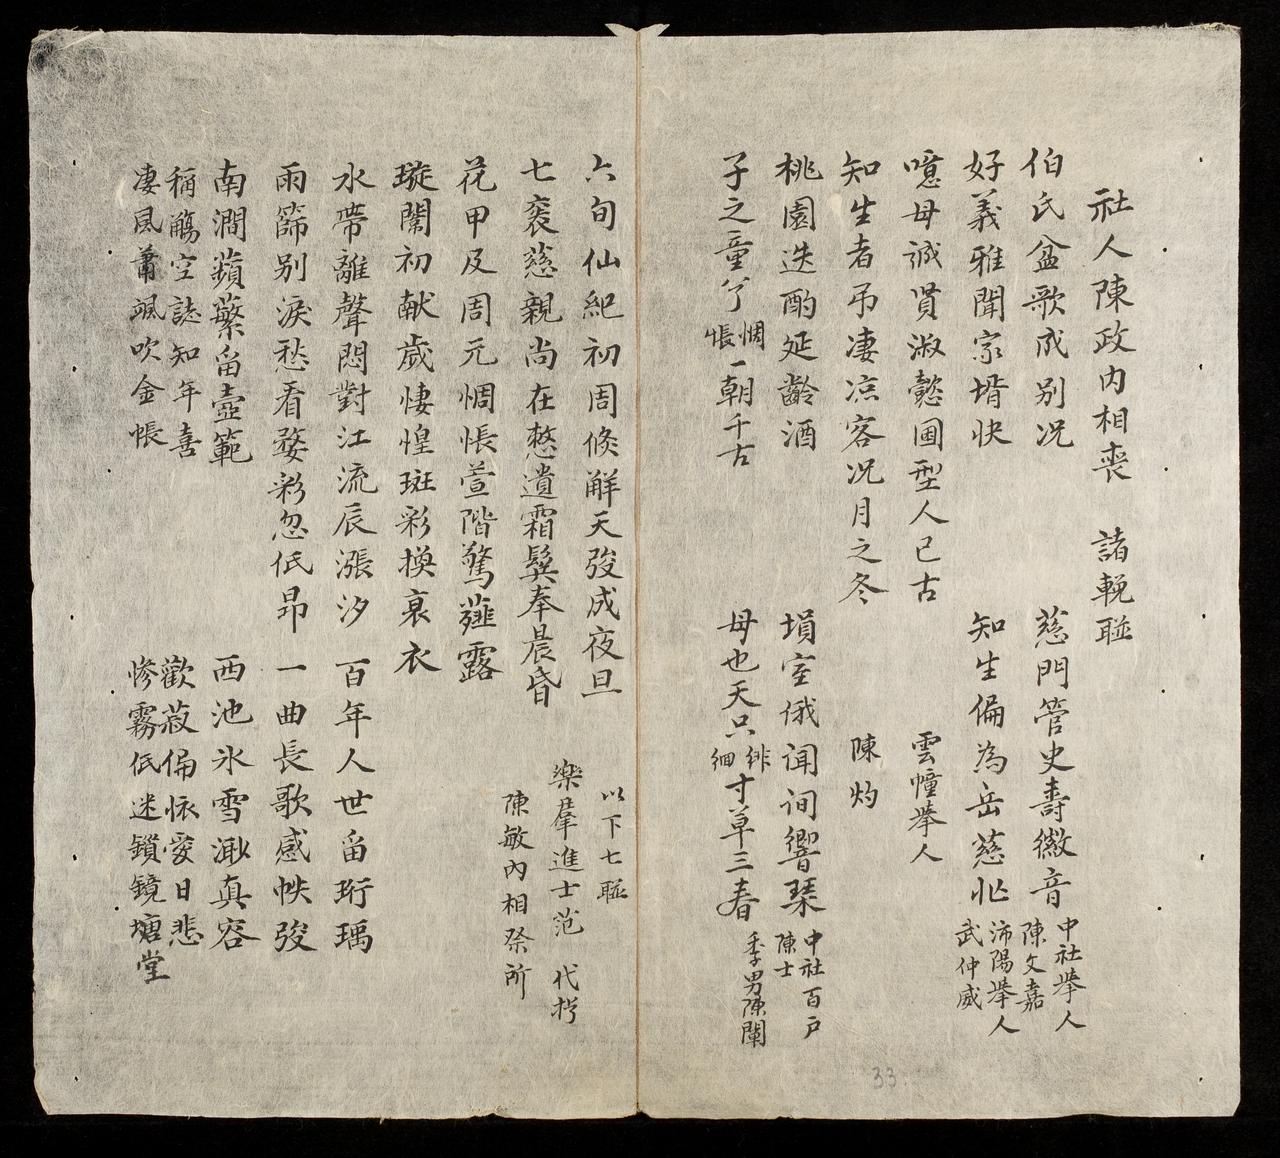 社人陳政内相喪 諸輓聯
伯氏盆歌成别况 慈門管史壽徽音 中社舉人陳文嘉
好義雅聞家壻快 知生偏為岳慈悲 沛陽舉人武仲威
噫母誠賢淑懿閫型人已古 雲幢舉人
知生者吊凄凉客况月之冬 陳灼
桃園迭酌延齡酒 塤室俄闻词響琴 中社百户陳士
子之童兮惆悵一朝千古 母也天只徘徊寸草三春 季男陳闡
六旬仙紀初周倏觧天弢成夜旦 以下七聯
七袠慈親尚在憖遺霜鬓奉晨昏 樂羣進士范 代挽
花甲及周元惆悵萱階驚薤露 陳敏内相祭所
璇闈初献歲悽惶斑彩换哀衣
水帶離聲悶對江流辰漲汐 百年人世留珩瑀
雨篩别淚愁看婺彩忽低昂 一曲長歌感帙弢
南澗蘋蘩留壼範 西池氷雪渺真容
稱觴空誌知年喜 歡菽偏恢愛日悲
凄風蕭颯吹金帳 慘霧低迷鎖鏡塘堂
33